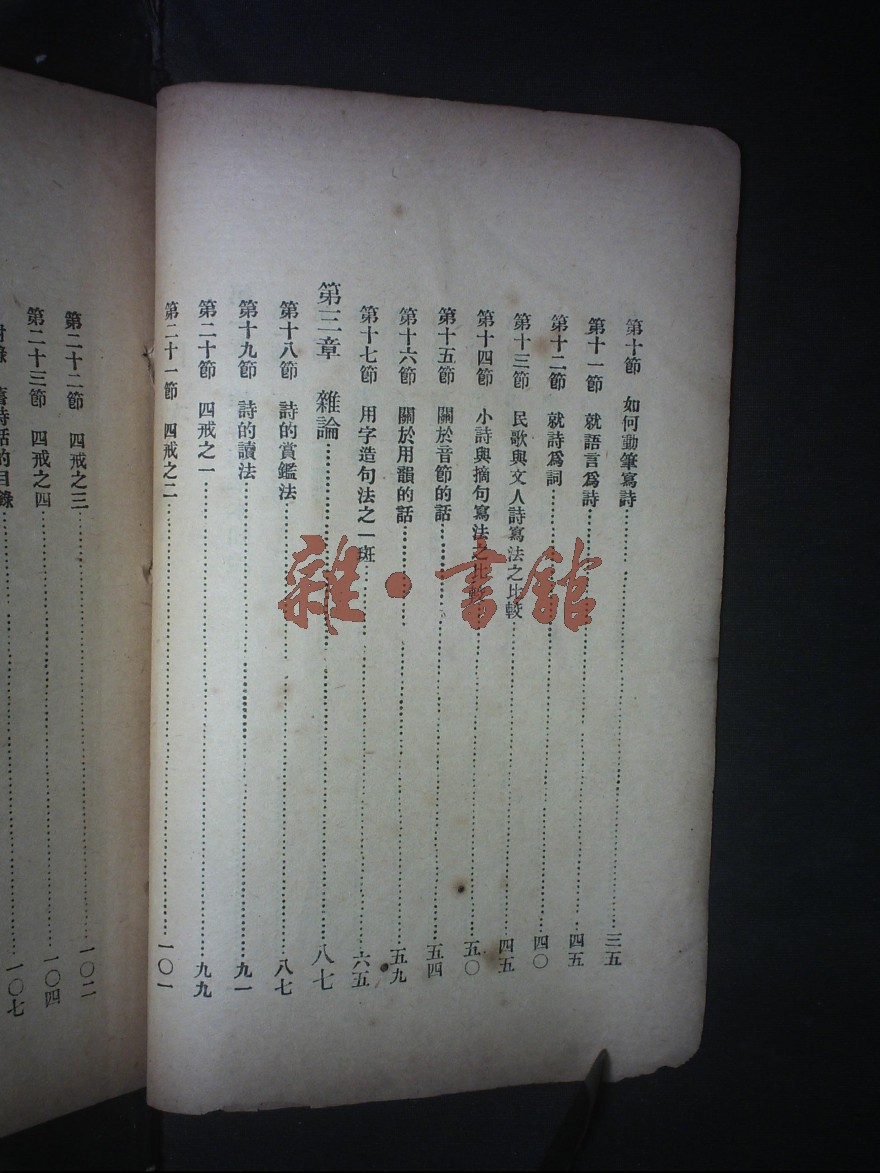 第十節　如何動筆寫詩……三五
第十一節　就語言爲詩……四五
第十二節　就詩爲詞……四〇
第十三節　民歌與文人詩寫法之比較……四五
第十四節　小詩與摘句寫法之比較……五〇
第十五節　關於音節的話……五四
第十六節　關於用韻的話……五九
第十七節　用字造句法之一斑……六五
第三章　雜論……八七
第十八節　詩的賞鑑法……八七
第十九節　詩的讀法……九一
第二十節　四戒之一……九九
第二十一節　四戒之二……一〇一
第二十二節　四戒之三……一〇二
第二十三節　四戒之四……一〇四
附錄　舊詩話的目錄……一〇七
雜·書館